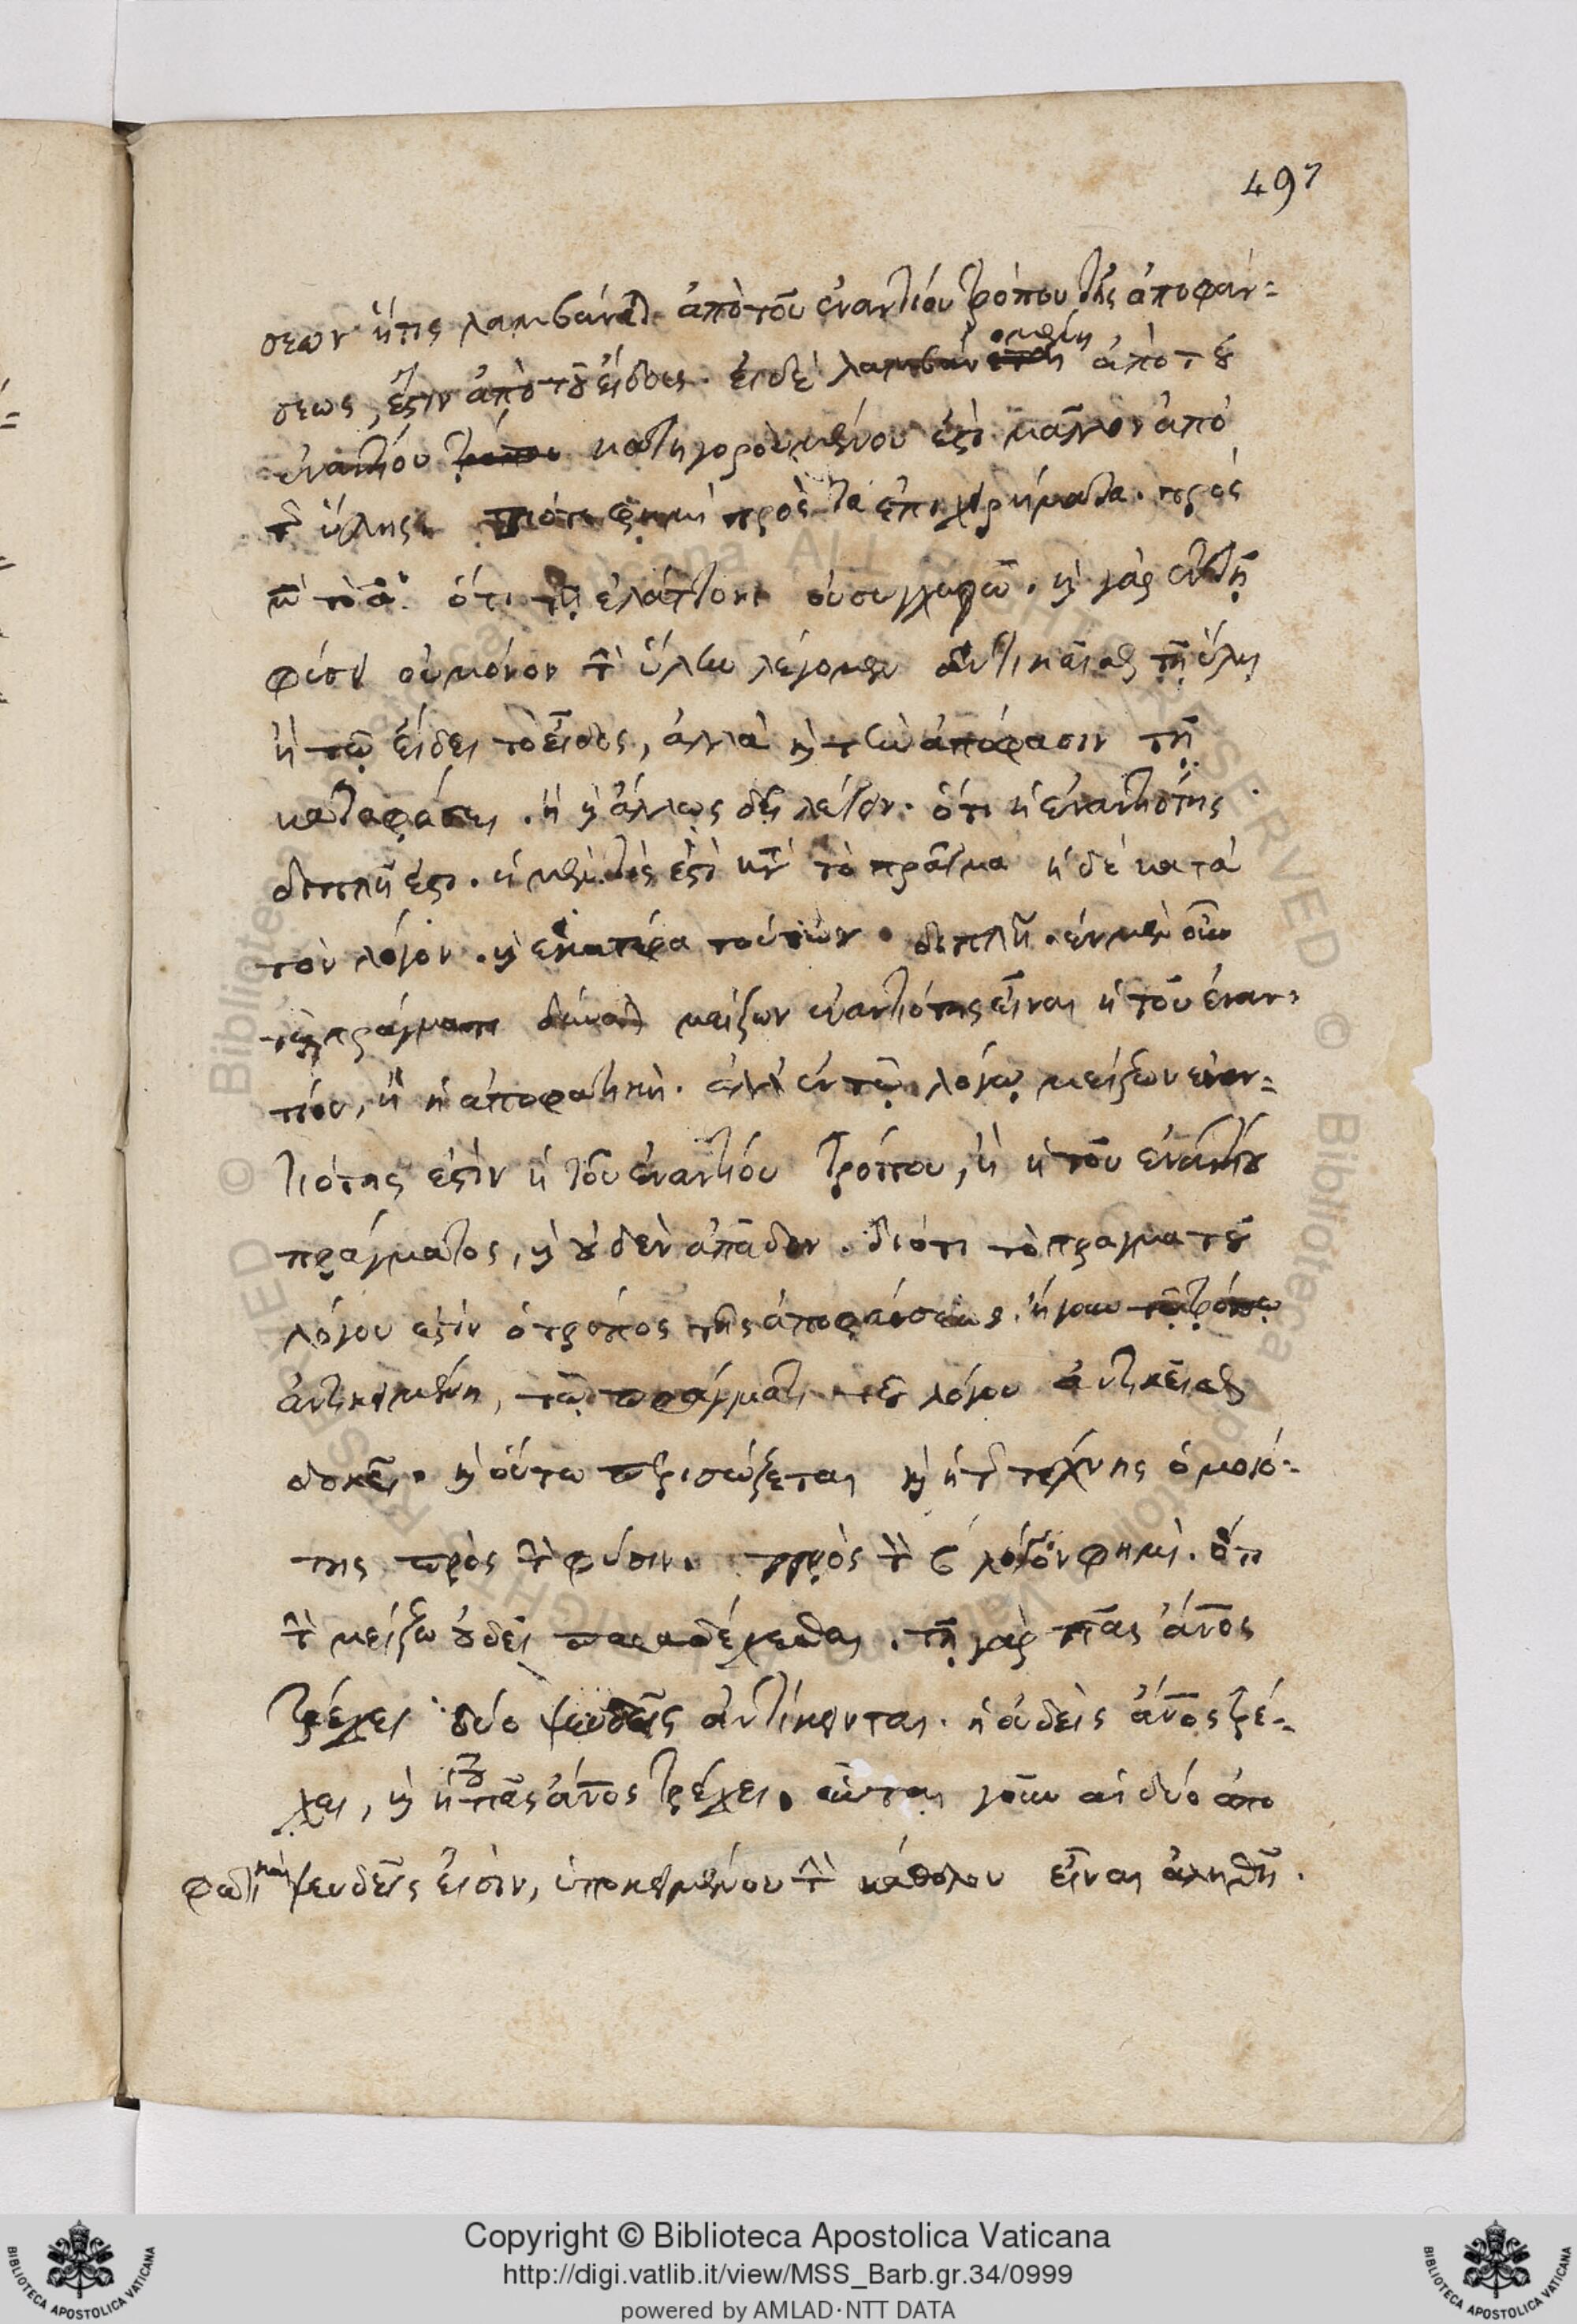 497
σεων ἥτις λαμβάνεται ἀπὸ τοῦ ἐναντίου τρόπου τῆς ἀποφάν=
σεως, ἔστιν ἀπὸ τοῦ εἴδους. εἰ δὲ λαμβανομένη ἀπὸ τοῦ
ἐναντίου τρόπου κατηγορουμένου ἐστὶ μᾶλλον ἀπὸ
τῆς ὕλης. πρὸς τὰ ἐπιχειρήματα. πρὸς
μὲν τὸ αον ὅτι τῇ ἐλάττονι οὐ συγχωρῶ. καὶ γὰρ ἐν τῇ
φύσει οὐ μόνον τὴν ὕλην λέγομεν ἀντικεῖσθαι τῇ ὕλῃ
ἢ τῷ εἴδει τὸ εἶδος, ἀλλὰ καὶ τὴν ἀπόφασιν τῇ
καταφάσει. ἢ καὶ ἄλλως δεῖ λέγειν. ὅτι ἡ ἐναντιότης
διπλῆ ἐστι. ἡ μὲν τίς ἐστὶ κατὰ τὸ πρᾶγμα ἡ δὲ κατὰ
τὸν λόγον. καὶ ἑκατέρα τούτων διπλῆ. ἐν μὲν οὖν
τῷ πράγματι δύναται μείζων ἐναντιότης εἶναι ἡ τοῦ ἐναν=
τίου, ἢ ἡ ἀποφατικὴ. ἀλλ' ἐν τῷ λόγῳ μείζων ἐναν=
τιότης ἐστὶν ἡ τοῦ ἐναντίου τρόπου, ἢ ἡ τοῦ ἐναντίου
πράγματος, καὶ οὐδὲν ἀπᾶδον. διότι τὸ πρᾶγμα τοῦ
λόγου ἐστὶν ὁ τρόπος τῆς ἀποφάνσεως. ἡ γοῦν τῷ τρόπῳ
ἀντικειμένη, τῷ πράγματι τοῦ λόγου ἀντικεῖσθαι
δοκεῖ. καὶ οὕτω περισώζεται καὶ ἡ τῆς τέχνης ὁμοιό=
της πρὸς τὴν φύσιν. πρὸς τὸν ϛ λόγον φημὶ. ὅτι
τὴν μείζω οὐ δεῖ παραδέχεσθαι. τῇ γὰρ πᾶς ἄνος
τρέχει δύο ψευδεῖς ἀντίκεινται. ἡ οὐδεὶς ἄνος τρέ=
χει, καὶ ἡ οὐ πᾶς ἄνος τρέχει. αὗται γοῦν αἱ δύο ἀπο
φατικαὶ ψευδεῖς εἰσὶν, ὑποκειμένου τὴν καθόλου εἶναι ἀληθῆ.
Copyright © Biblioteca Apostolica Vaticana
http://digi.vatlib.it/view/MSS_Barb.gr.34/0999
powered by AMLAD·NTT DATA